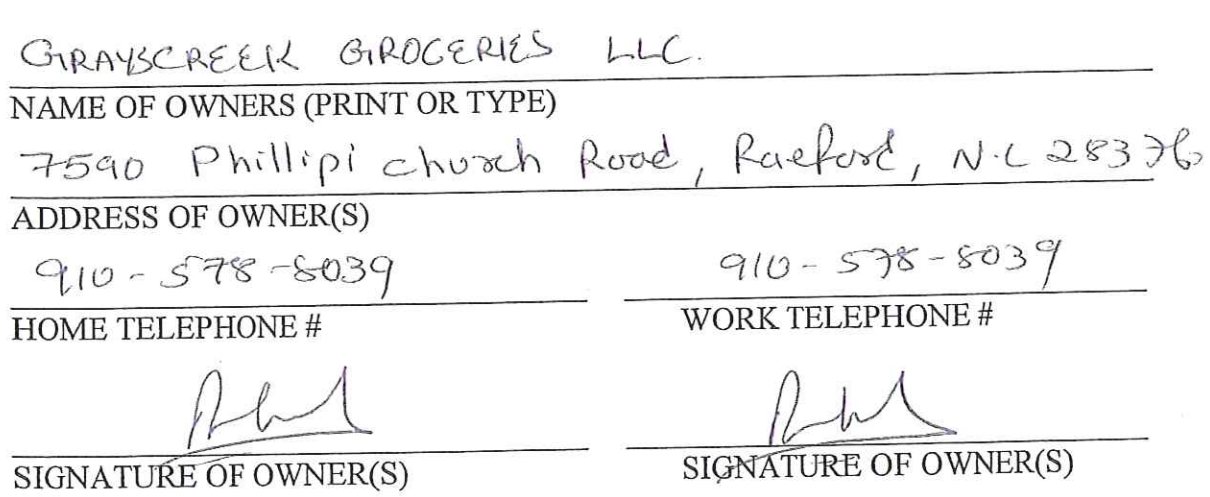 GRAYSCREEK GROCERIES LLC.
NAME OF OWNERS (PRINT OR TYPE)
7590 Phillipi church Road, Raeford, N.C 28376
ADDRESS OF OWNER(S)
910-578-8039 910-578-8039
HOME TELEPHONE # WORK TELEPHONE #
SIGNATURE OF OWNER(S) SIGNATURE OF OWNER(S)